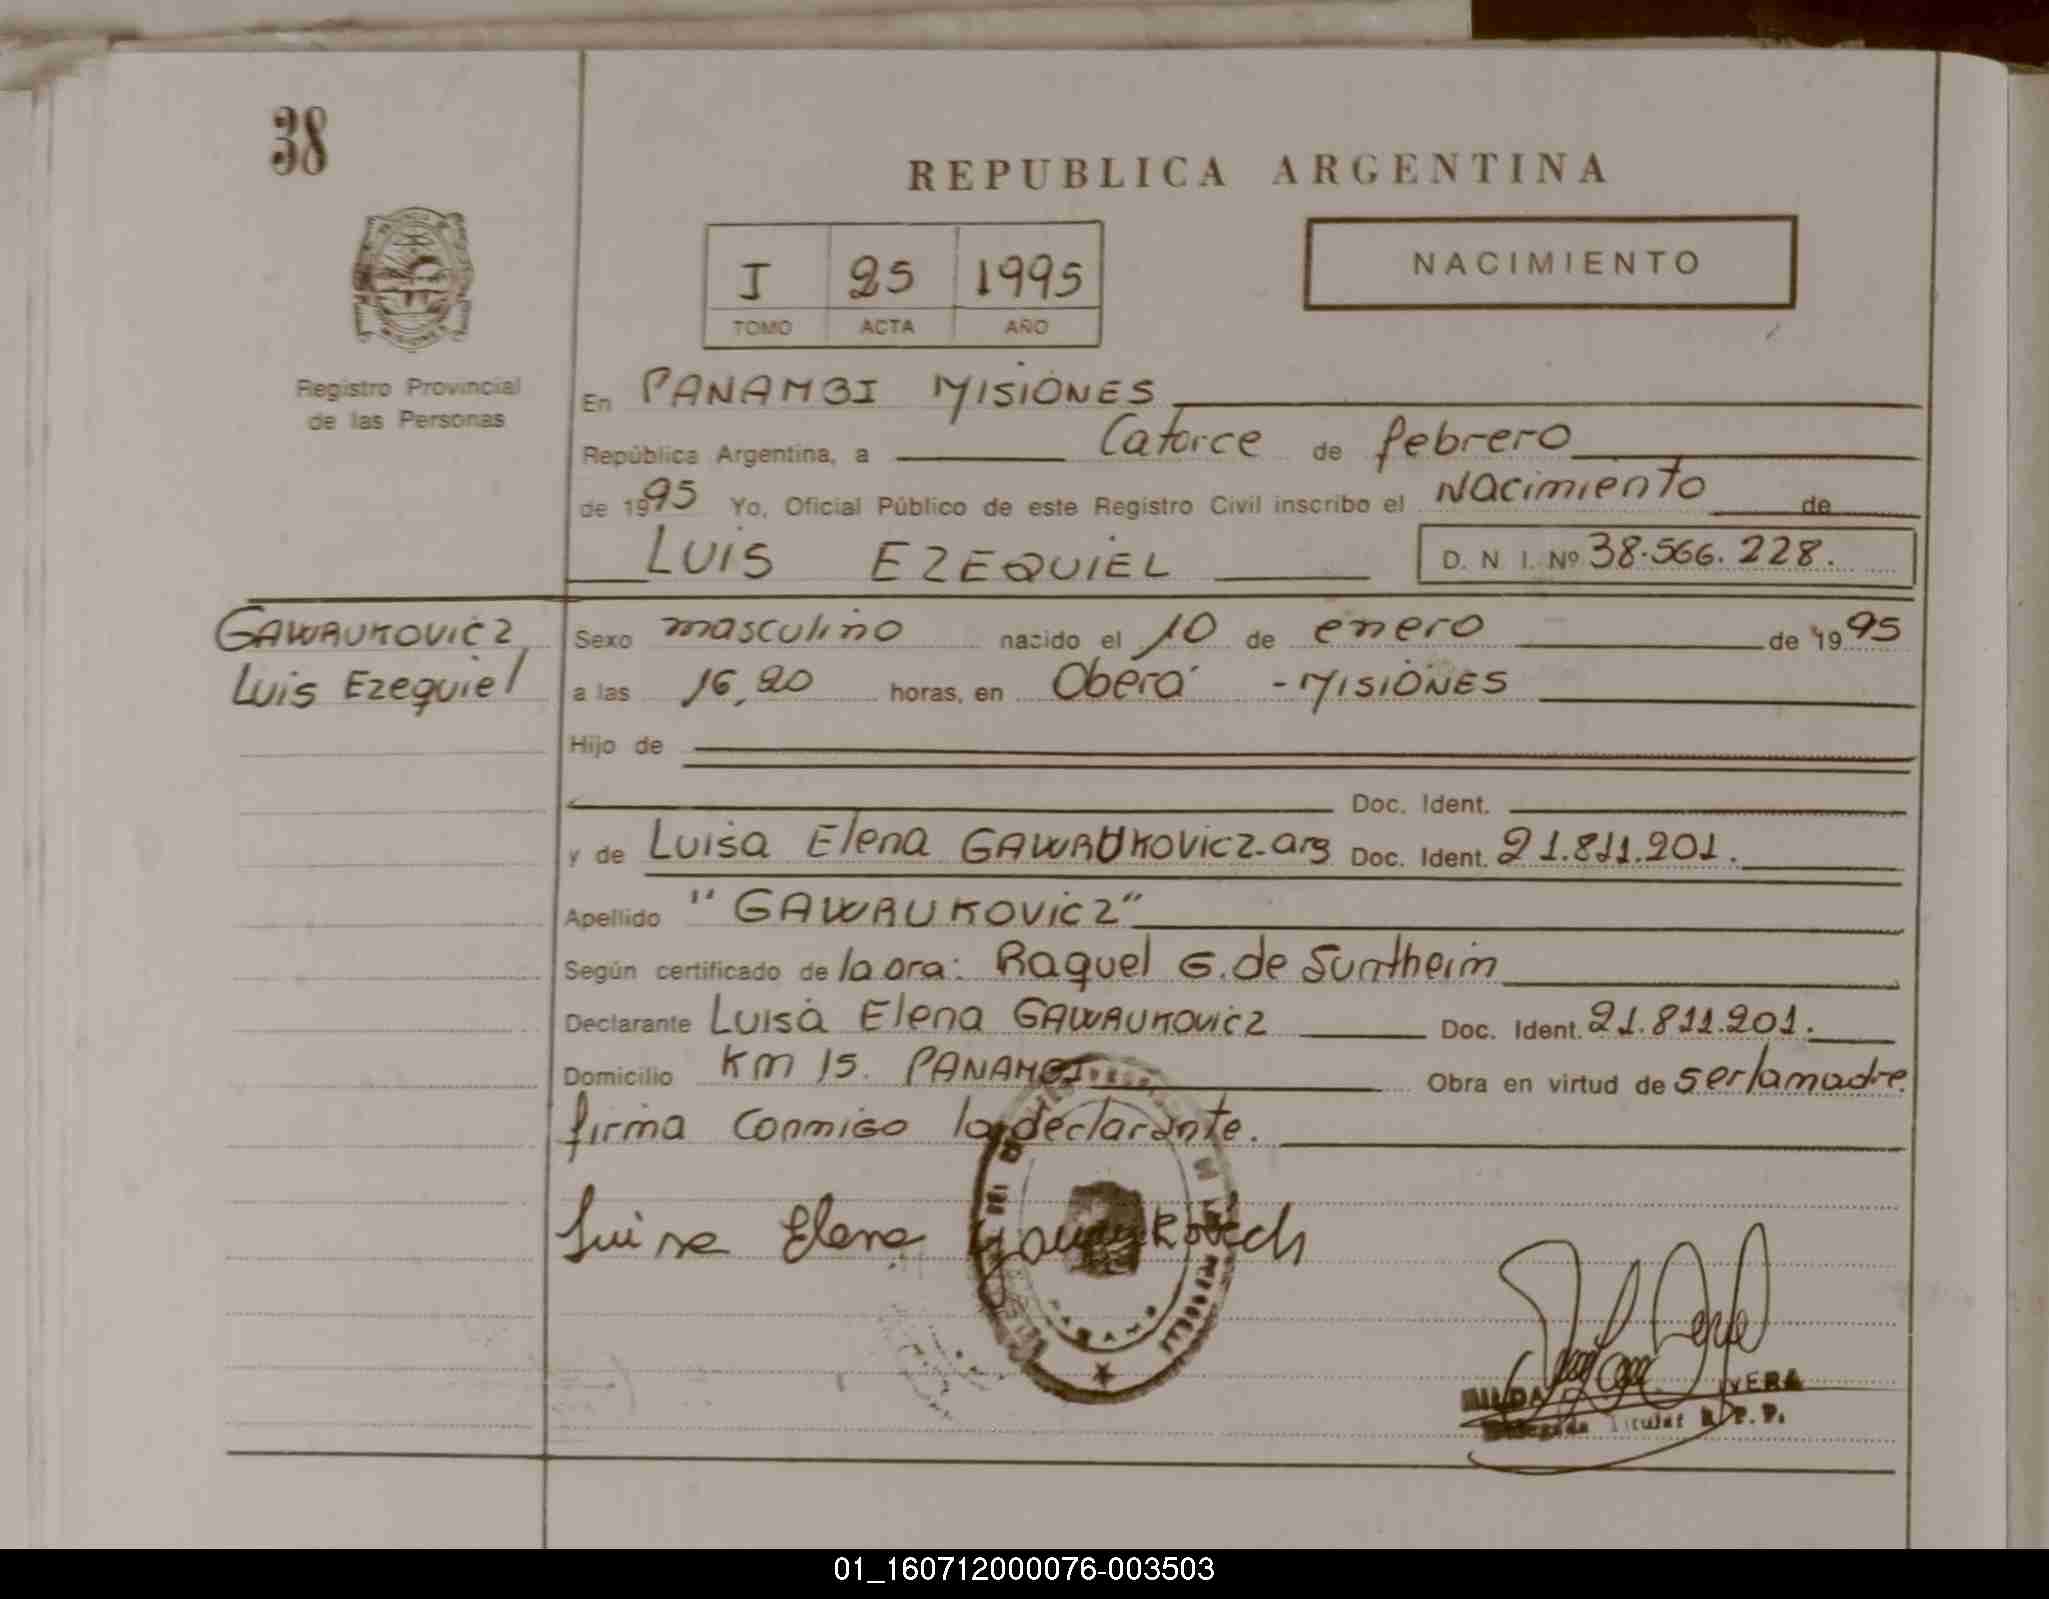 38
REPUBLICA ARGENTINA
I 25 1995
TOMO ACTA AÑO
NACIMIENTO
Registro Provincial
de las Personas
En PANAMBI MISIONES
República Argentina, a Catorce de febrero
de 1995 Yo, Oficial Público de este Registro Civil inscribo el Nacimiento de
LUIS EZEQUIEL D. N. I. Nº 38.566.228.
GAWRUKOVICZ
Luis Ezequiel
Sexo masculino nacido el 10 de enero de 1995
a las 16,20 horas, en Oberá - MISIONES
Hijo de
Doc. Ident.
y de Luisa Elena GAWRUKOVICZ-arg Doc. Ident. 21.811.201.
Apellido "GAWRUKOVICZ"
Según certificado de la Dra: Raquel G. de Suntheim
Declarante Luisa Elena GAWRUKOVICZ Doc. Ident. 21.811.201.
Domicilio Km 15. PANAMBI Obra en virtud de ser la madre
firma conmigo la declarante.
Luisa Elena
PANAMBI
Delegada Titular R. P. P.
01_160712000076-003503